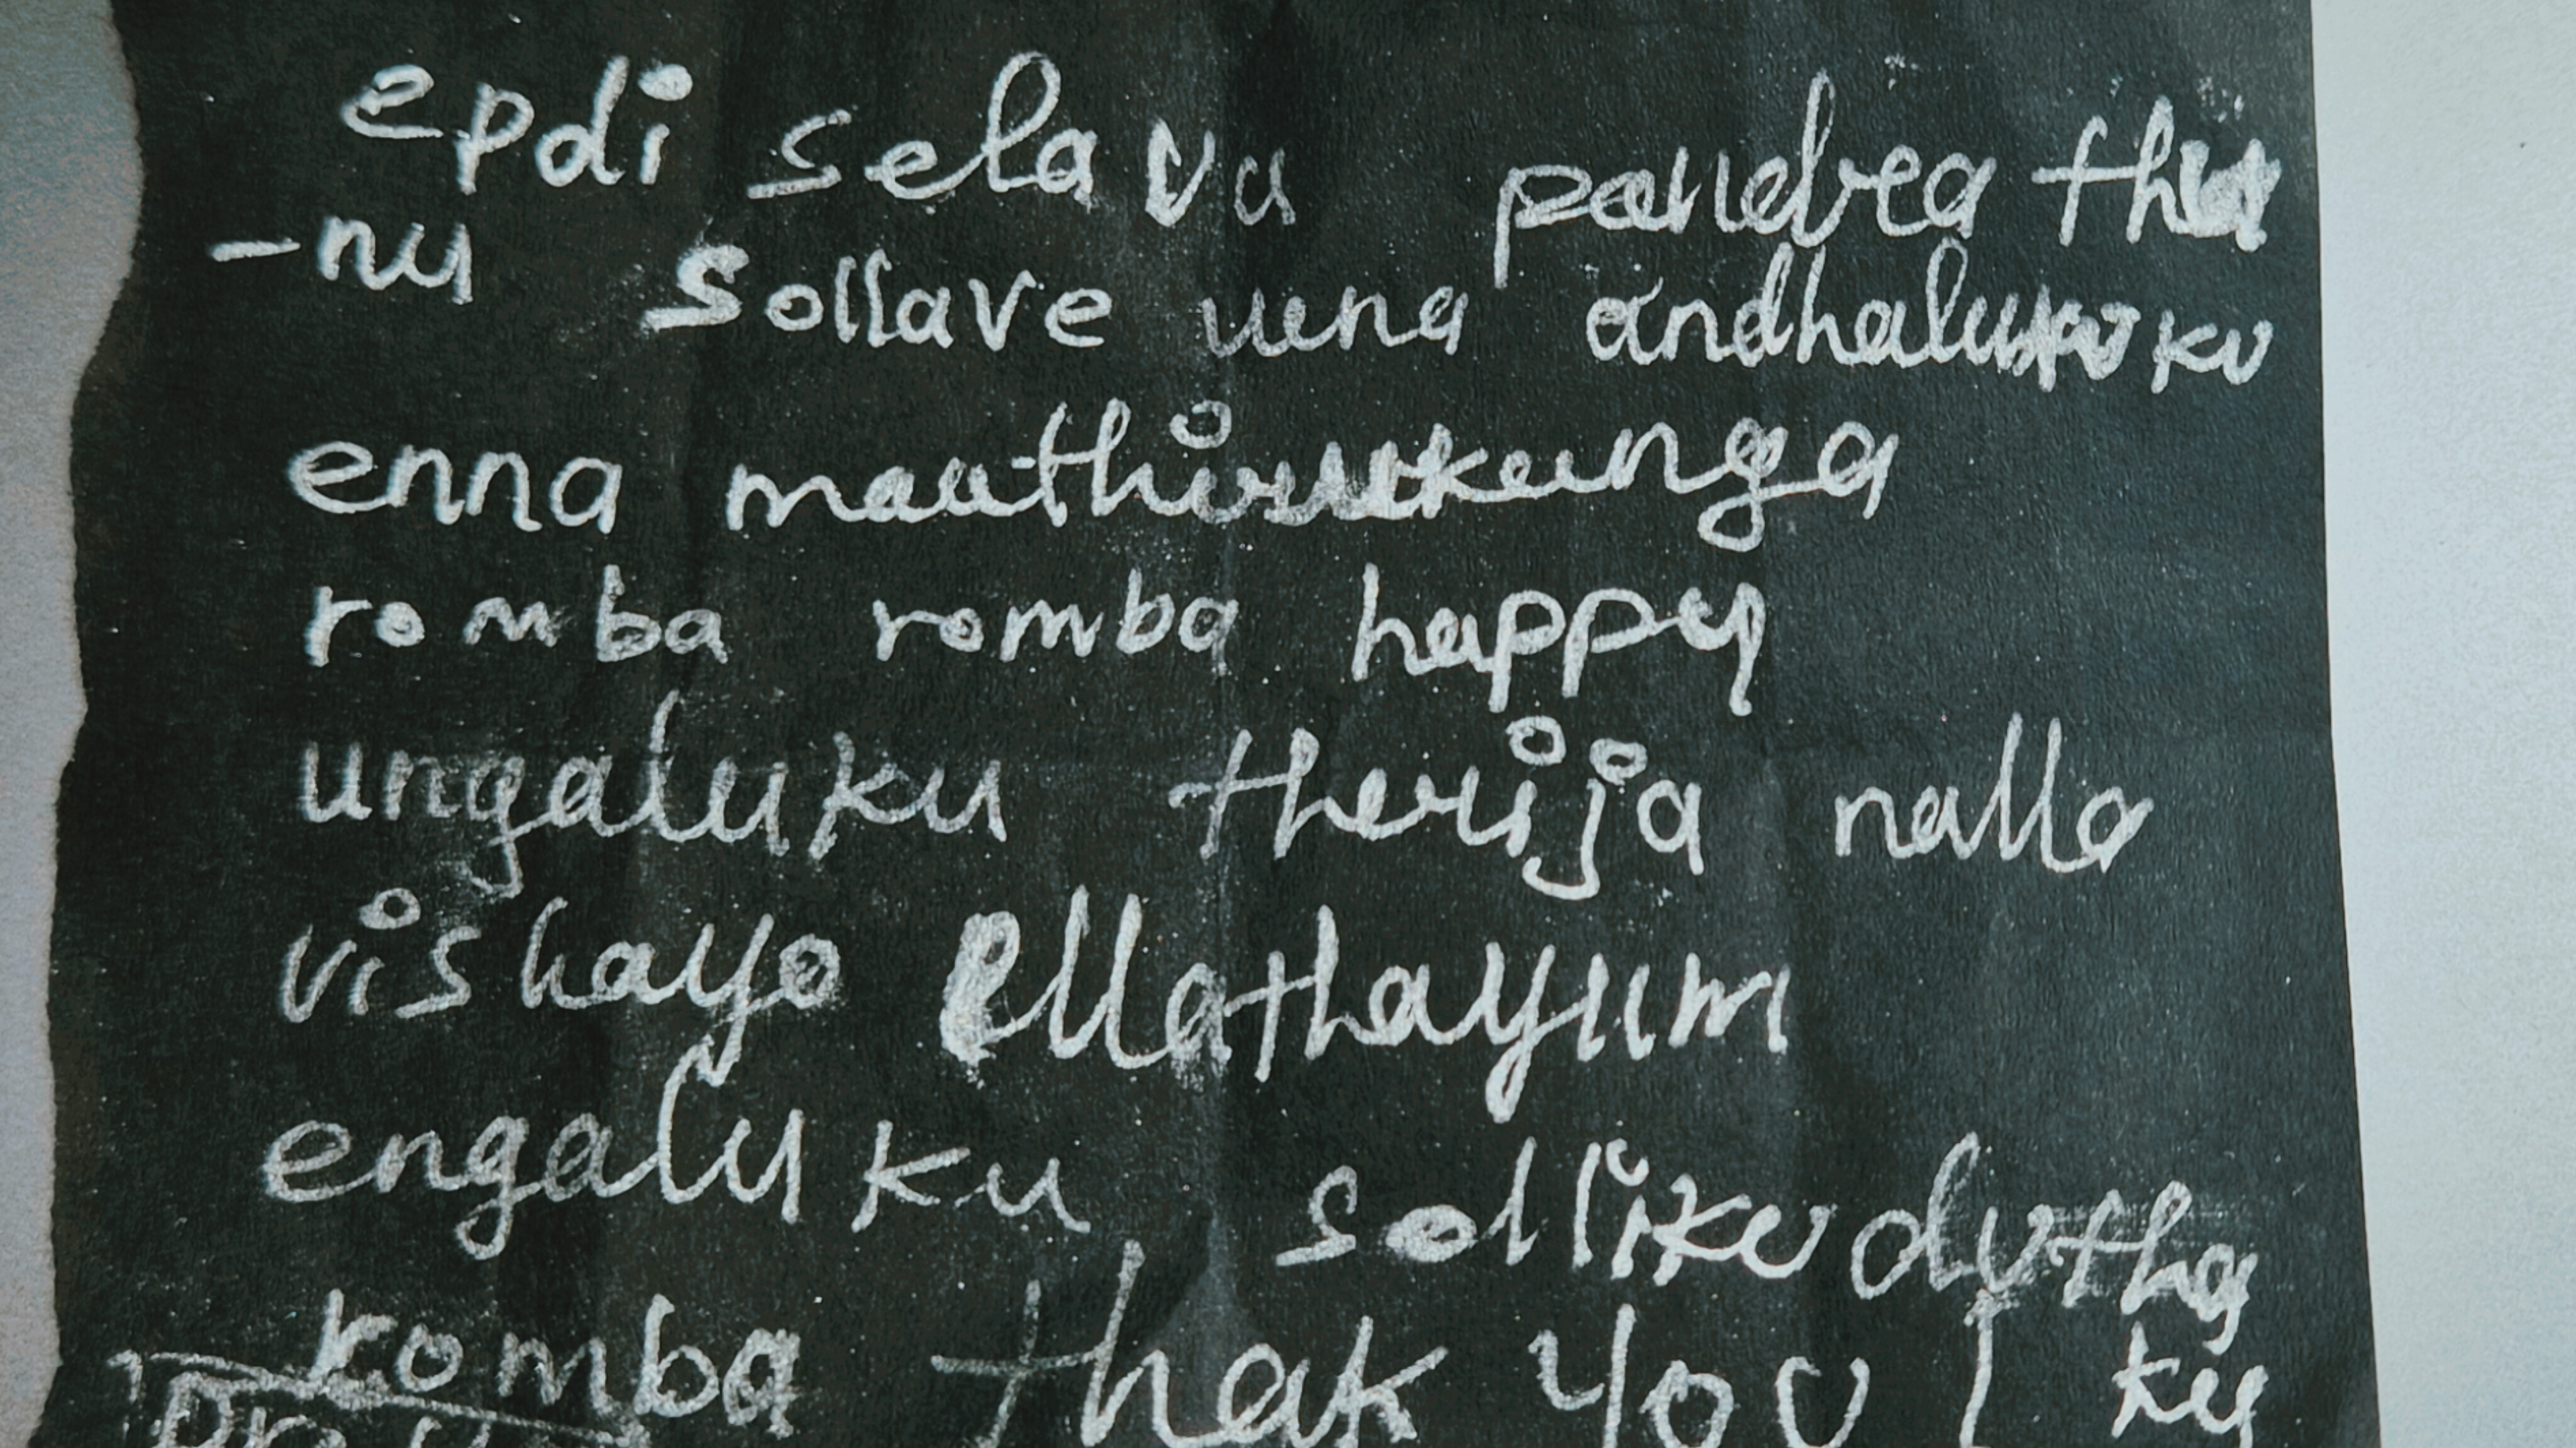 epdi selavu pandrathu
-nu sollave vena andhaluku
enna maathirukeenga
romba romba happy
ungaluku therija nalla
vishayo ellathayum
engaluku sollikudutha
romba thak you ku